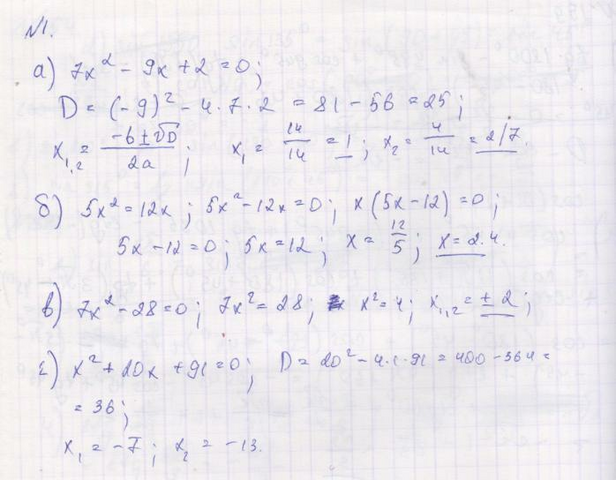 №1.
а) 7x² - 9x + 2 = 0;
D = (-9)² - 4·7·2 = 81 - 56 = 25;
x₁,₂ = (-b ± √D)/2a; x₁ = 14/14 = 1; x₂ = 4/14 = 2/7.
б) 5x² = 12x; 5x² - 12x = 0; x(5x - 12) = 0;
5x - 12 = 0; 5x = 12; x = 12/5; x = 2.4.
в) 7x² - 28 = 0; 7x² = 28; x² = 4; x₁,₂ = ± 2;
г) x² + 20x + 91 = 0; D = 20² - 4·1·91 = 400 - 364 =
= 36;
x₁ = -7; x₂ = -13.